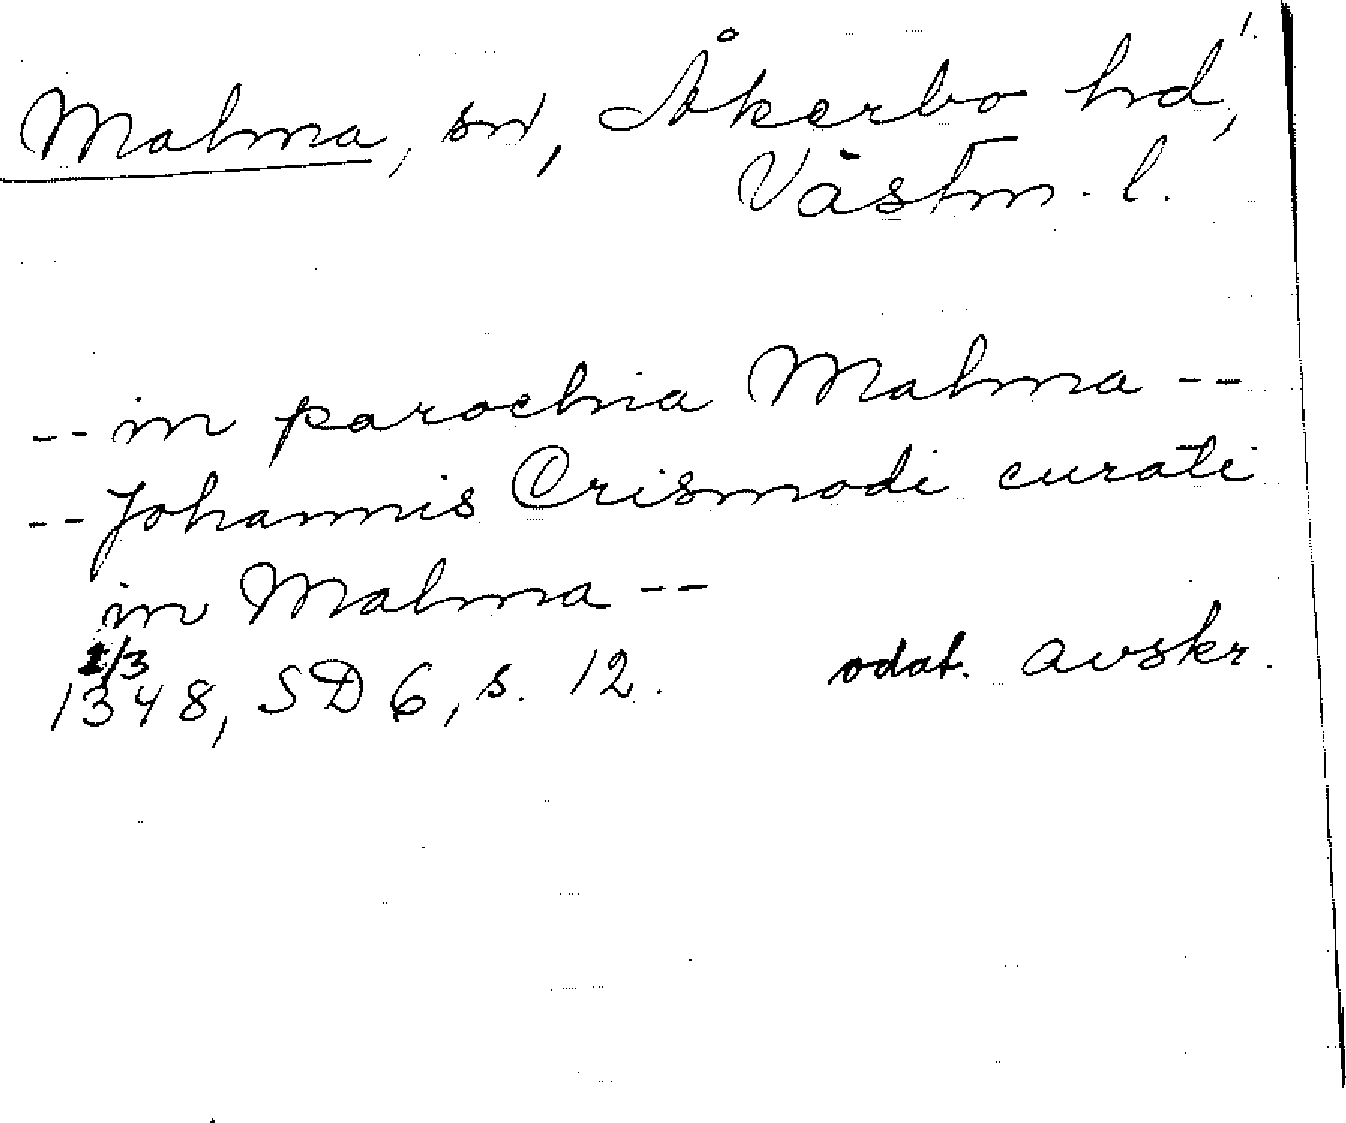 1.
Malma, sn, Åkerbo hd,
Västm. l.
-- in parochia Malma --
-- Johannis Crismodi curati
in Malma --
1/3
1348, SD 6, s. 12. odat. avskr.